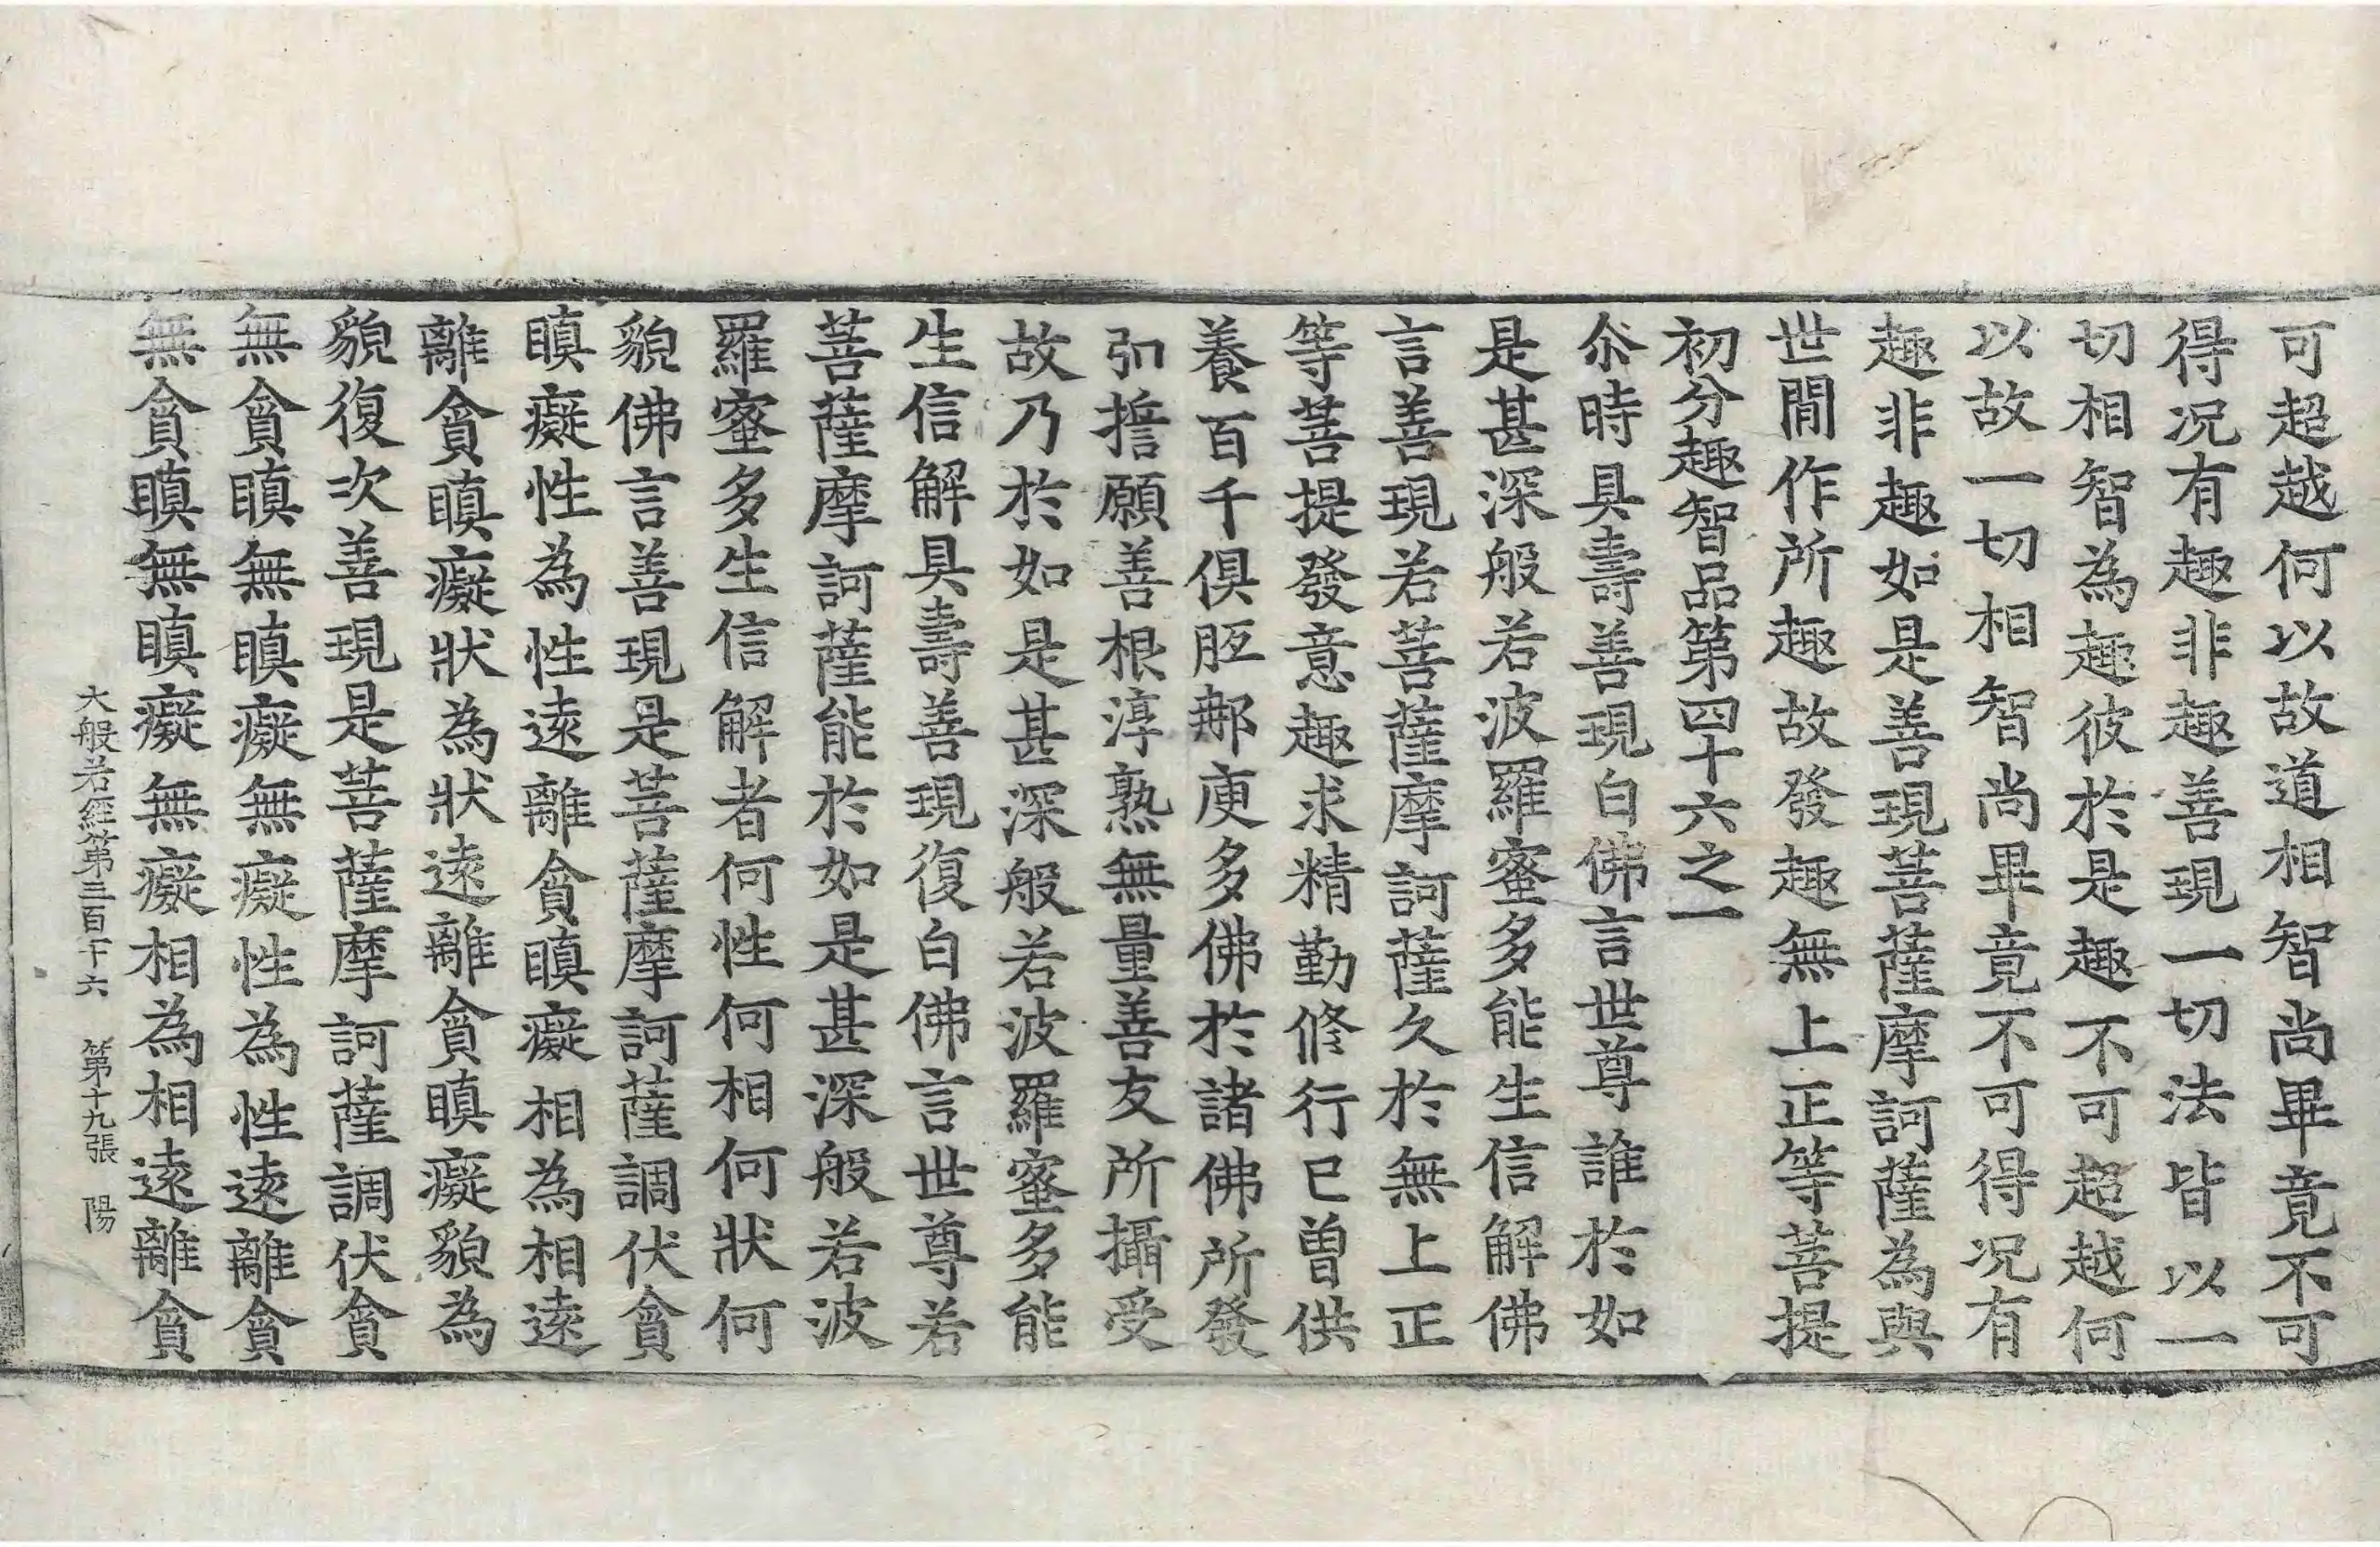 可超越何以故道相智尚畢竟不可
得况有趣非趣善現一切法皆以一
切相智為趣彼於是趣不可超越何
以故一切相智尚畢竟不可得况有
趣非趣如是善現菩薩摩訶薩為與
世間作所趣故發趣無上正等菩提
初分趣智品第四十六之一
尒時具壽善現白佛言世尊誰於如
是甚深般若波羅蜜多能生信解佛
言善現若菩薩摩訶薩久於無上正
等菩提發意趣求精勤修行已曾供
養百千俱胝那庾多佛於諸佛所發
弘擔願善根淳熟無量善友所攝受
故乃於如是甚深般若波羅蜜多能
生信解具壽善現復白佛言世尊若
菩薩摩訶薩能於如是甚深般若波
羅蜜多生信解者何性何相何狀何
貌佛言善現是菩薩摩訶薩調伏貪
瞋癡性為性遠離貪瞋癡相為相遠
離貪瞋癡狀為狀遠離貪瞋癡貌為
貌復次善現是菩薩摩訶薩調伏貪
無貪瞋無瞋癡無癡性為性遠離貪
無貪瞋無瞋癡無癡相為相遠離貪
大般若經第三百十六 第十九張 陽